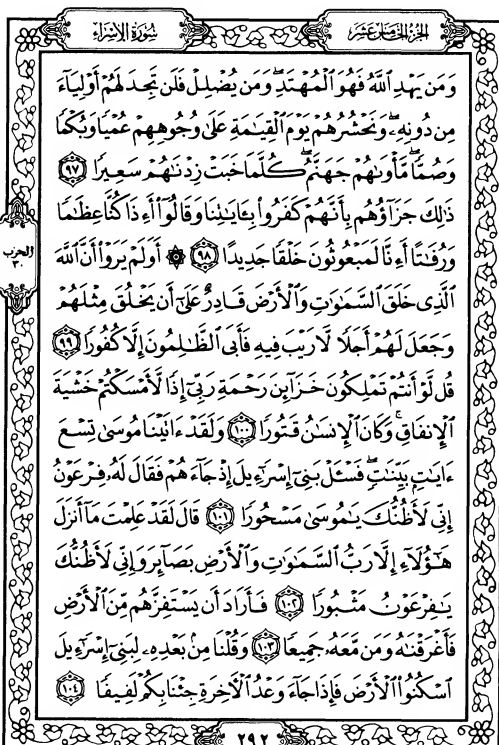 الجزء الخامس عشر
سورة الإسراء
وَمَن يَهْدِ ٱللَّهُ فَهُوَ ٱلْمُهْتَدِ ۖ وَمَن يُضْلِلْ فَلَن تَجِدَ لَهُمْ أَوْلِيَآءَ
مِن دُونِهِۦ ۖ وَنَحْشُرُهُمْ يَوْمَ ٱلْقِيَٰمَةِ عَلَىٰ وُجُوهِهِمْ عُمْيًا وَبُكْمًا
وَصُمًّا ۖ مَّأْوَىٰهُمْ جَهَنَّمُ ۖ كُلَّمَا خَبَتْ زِدْنَٰهُمْ سَعِيرًا ٩٧
ذَٰلِكَ جَزَآؤُهُم بِأَنَّهُمْ كَفَرُوا۟ بِـَٔايَٰتِنَا وَقَالُوٓا۟ أَءِذَا كُنَّا عِظَٰمًا
وَرُفَٰتًا أَءِنَّا لَمَبْعُوثُونَ خَلْقًا جَدِيدًا ٩٨ ۞ أَوَلَمْ يَرَوْا۟ أَنَّ ٱللَّهَ
الحزب ٣٠
ٱلَّذِى خَلَقَ ٱلسَّمَٰوَٰتِ وَٱلْأَرْضَ قَادِرٌ عَلَىٰٓ أَن يَخْلُقَ مِثْلَهُمْ
وَجَعَلَ لَهُمْ أَجَلًا لَّا رَيْبَ فِيهِ فَأَبَى ٱلظَّٰلِمُونَ إِلَّا كُفُورًا ٩٩
قُل لَّوْ أَنتُمْ تَمْلِكُونَ خَزَآئِنَ رَحْمَةِ رَبِّىٓ إِذًا لَّأَمْسَكْتُمْ خَشْيَةَ
ٱلْإِنفَاقِ ۚ وَكَانَ ٱلْإِنسَٰنُ قَتُورًا ١٠٠ وَلَقَدْ ءَاتَيْنَا مُوسَىٰ تِسْعَ
ءَايَٰتٍۭ بَيِّنَٰتٍ ۖ فَسْـَٔلْ بَنِىٓ إِسْرَٰٓءِيلَ إِذْ جَآءَهُمْ فَقَالَ لَهُۥ فِرْعَوْنُ
إِنِّى لَأَظُنُّكَ يَٰمُوسَىٰ مَسْحُورًا ١٠١ قَالَ لَقَدْ عَلِمْتَ مَآ أَنزَلَ
هَٰٓؤُلَآءِ إِلَّا رَبُّ ٱلسَّمَٰوَٰتِ وَٱلْأَرْضِ بَصَآئِرَ وَإِنِّى لَأَظُنُّكَ
يَٰفِرْعَوْنُ مَثْبُورًا ١٠٢ فَأَرَادَ أَن يَسْتَفِزَّهُم مِّنَ ٱلْأَرْضِ
فَأَغْرَقْنَٰهُ وَمَن مَّعَهُۥ جَمِيعًا ١٠٣ وَقُلْنَا مِنۢ بَعْدِهِۦ لِبَنِىٓ إِسْرَٰٓءِيلَ
ٱسْكُنُوا۟ ٱلْأَرْضَ فَإِذَا جَآءَ وَعْدُ ٱلْـَٔاخِرَةِ جِئْنَا بِكُمْ لَفِيفًا ١٠٤
٢٩٢